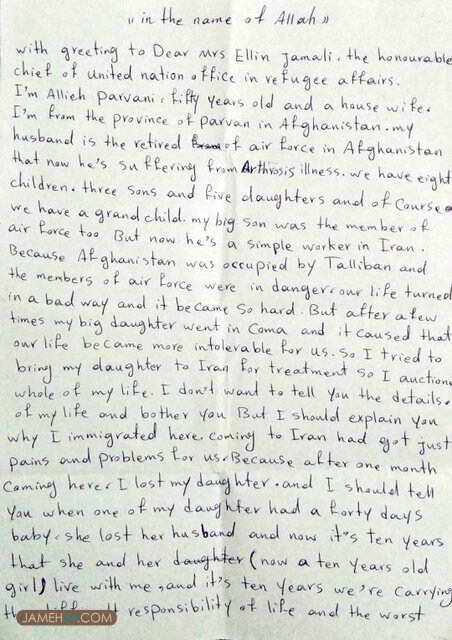 « in the name of Allah »
with greeting to Dear Mrs Ellin Jamali. the honourable
chief of united nation office in refugee affairs.
I'm Allieh parvani. fifty years old and a house wife.
I'm from the province of parvan in Afghanistan. my
husband is the retired of air force in Afghanistan
that now he's suffering from Arthrosis illness. we have eight
children. three sons and five daughters and of course
we have a grand child. my big son was the member of
air force too But now he's a simple worker in Iran.
Because Afghanistan was occupied by Talliban and
the members of air force were in danger, our life turned
in a bad way and it became so hard. But after a few
times my big daughter went in coma and it caused that
our life became more intolerable for us. so I tried to
bring my daughter to Iran for treatment so I auctione
whole of my life. I don't want to tell you the details.
of my life and bother you But I should explain you
why I immigrated here. coming to Iran had got just
pains and problems for us. Because after one month
coming here, I lost my daughter. and I should tell
you when one of my daughter had a forty days
baby. she lost her husband and now it's ten years
that she and her daughter (now a ten years old
girl) live with me, and it's ten years we're carrying
responsibility of life and the worst
JAMEH24.COM